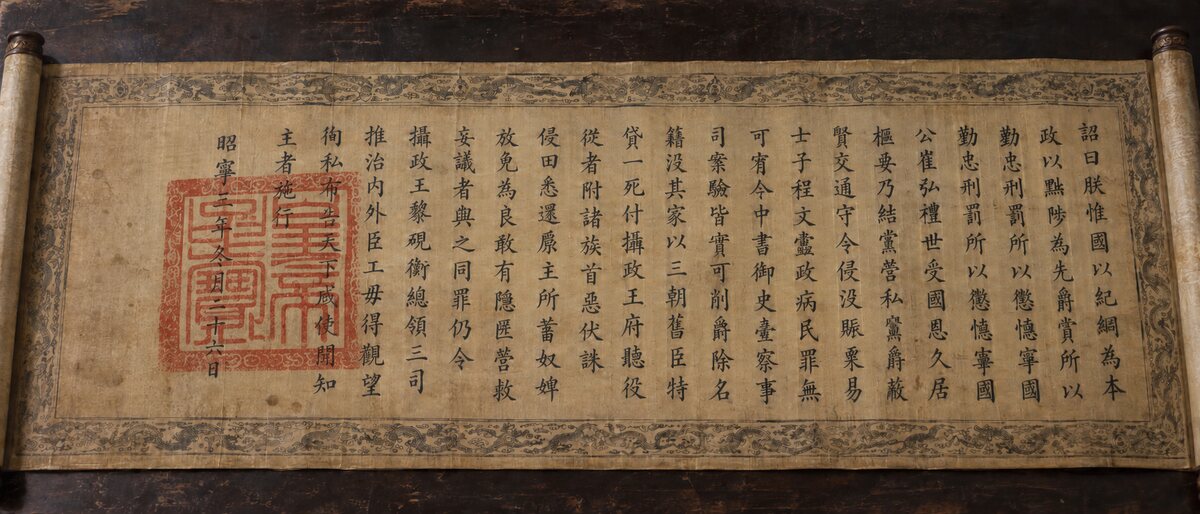 詔曰朕惟國以紀綱為本
政以黜陟為先爵賞所以
勤忠刑罰所以懲慝寧國
勤忠刑罰所以懲慝寧國
公崔弘禮世受國恩久居
樞要乃結黨營私鬻爵蔽
賢交通守令侵没賑粟易
士子程文蠹政病民罪無
可宥令中書御史臺察事
司案驗皆實可削爵除名
籍没其家以三朝舊臣特
貸一死付攝政王府聽役
從者附諸族首惡伏誅
侵田悉還原主所蓄奴婢
放免為良敢有隱匿營救
妄議者與之同罪仍令
攝政王黎硯衡總領三司
推治内外臣工毋得觀望
徇私布告天下咸使聞知
主者施行
昭寧三年冬月二十六日
皇帝
寶